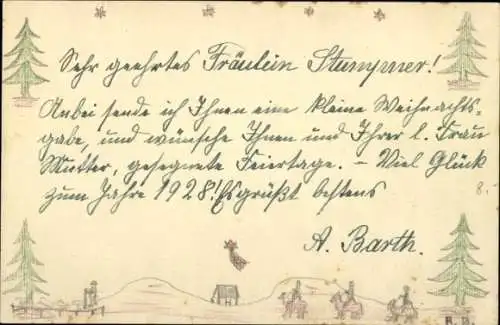 Sehr geehrtes Fräulein Stumpner!
Anbei sende ich Ihnen eine kleine Weihnachts-
gabe, und wünsche Ihnen und Ihrer l. Frau
Mutter, gesegnete Feiertage. – Viel Glück
zum Jahre 1928! Es grüßt bestens
A. Barth.